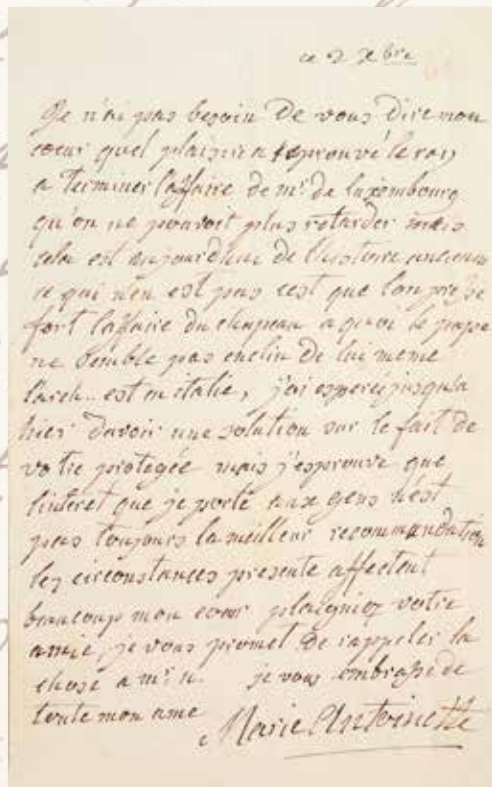 ce 2 xbre
Je n'ai pas besoin de vous dire mon
cœur quel plaisir a eprouvé le roy
a terminer l'affaire de mr. de luxembourg
qu'on ne pouvoit plus retarder mais
cela est aujourdhui de l'histoire ancienne
ce qui n'en est pas cest que l'on presse
fort l'affaire du chapeau a quoi le pape
ne semble pas enclin de lui meme
l'arch.. est en italie, j'ai esperé jusqu'a
hier d'avoir une solution sur le fait de
votre protegée mais j'esprouve que
l'interet que je porte aux gens n'est
pas toujours la meilleur recommandation
les circonstances presente affectent
beaucoup mon cœur plaigniez votre
amie, je vous promet de rappeler la
chose a mr. n. je vous embrasse de
toute mon ame
Marie Antoinette